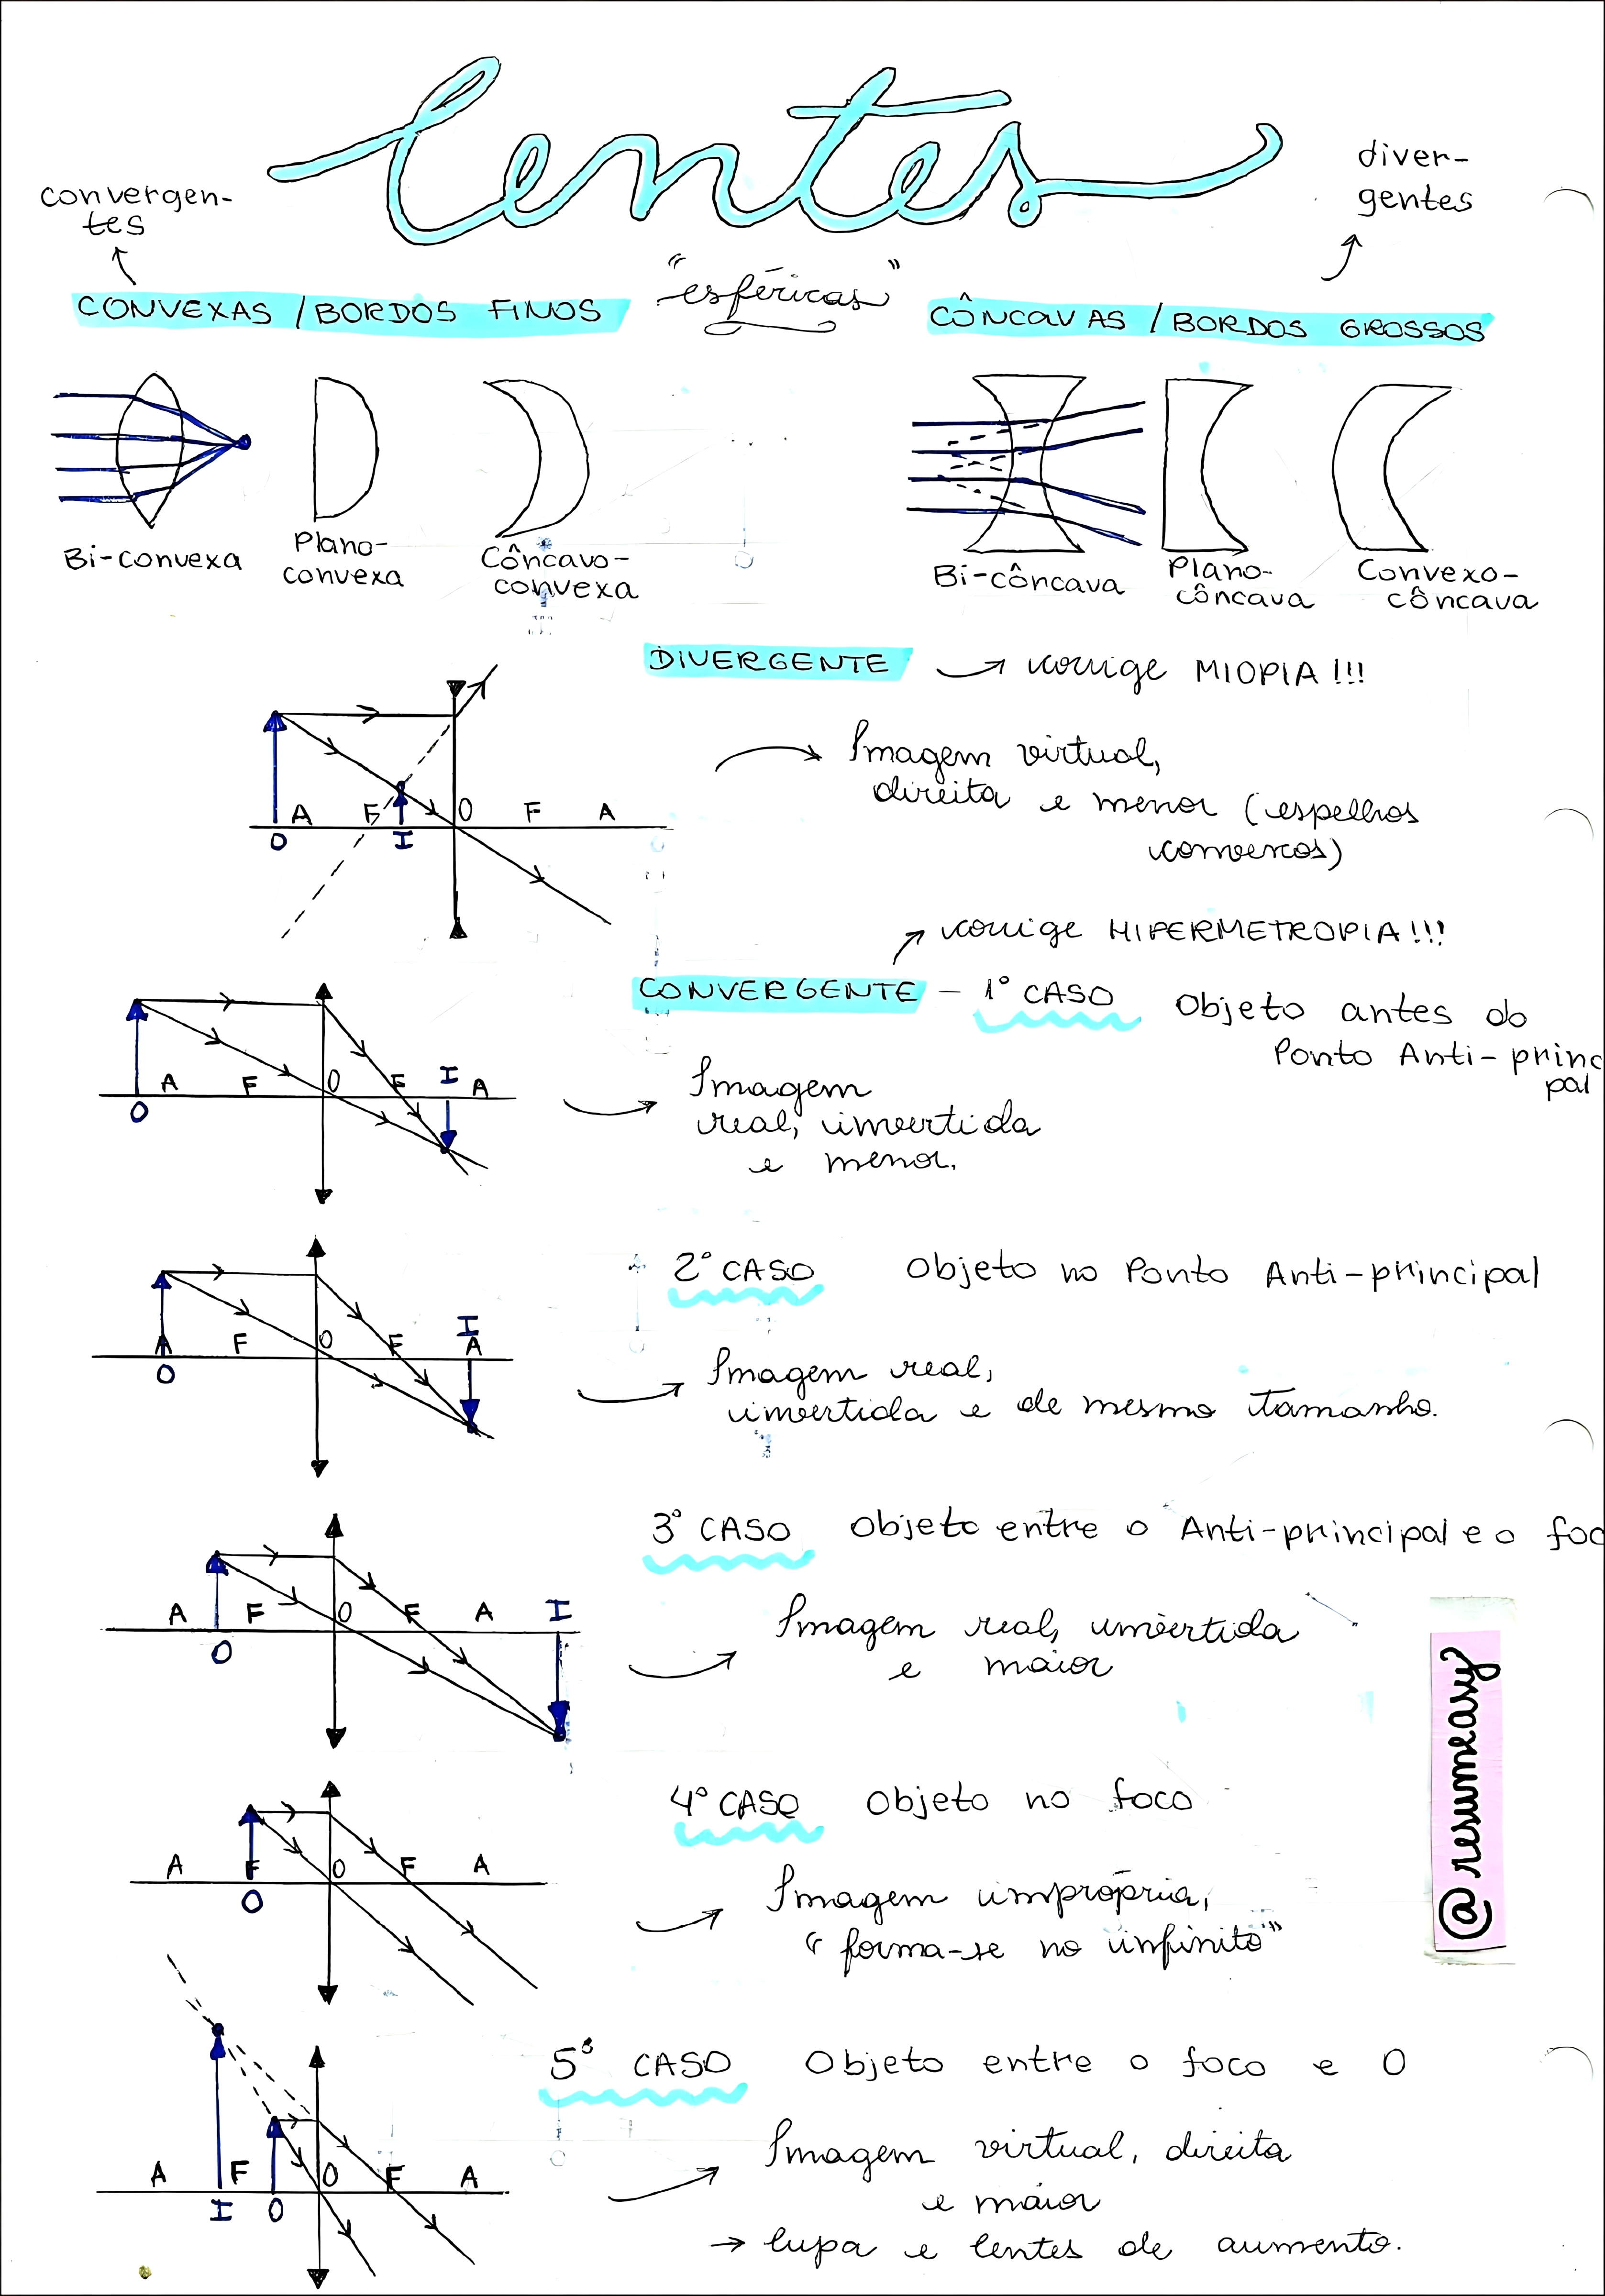 lentes
"esféricas"
convergen-
tes
CONVEXAS / BORDOS FINOS
diver-
gentes
CÔNCAVAS / BORDOS GROSSOS
Bi-convexa
Plano-
convexa
Côncavo-
convexa
Bi-côncava
Plano-
côncava
Convexo-
côncava
DIVERGENTE → corrige MIOPIA!!!
A F O F A
O I
Imagem virtual,
direita e menor (espelhos
convexos)
corrige HIPERMETROPIA!!!
CONVERGENTE - 1º CASO Objeto antes do
Ponto Anti-princ
pal
A F O F I A
O
Imagem
real, invertida
e menor.
2º CASO Objeto no Ponto Anti-principal
I
A F O F A
O
Imagem real,
invertida e de mesmo tamanho.
3º CASO Objeto entre o Anti-principal e o foc
A F O F A I
O
Imagem real, invertida
e maior
4º CASO Objeto no foco
A F O F A
O
Imagem imprópria,
"forma-se no infinito"
5º CASO Objeto entre o foco e O
A F O F A
I O
Imagem virtual, direita
e maior
→ lupa e lentes de aumento.
@resumeasy